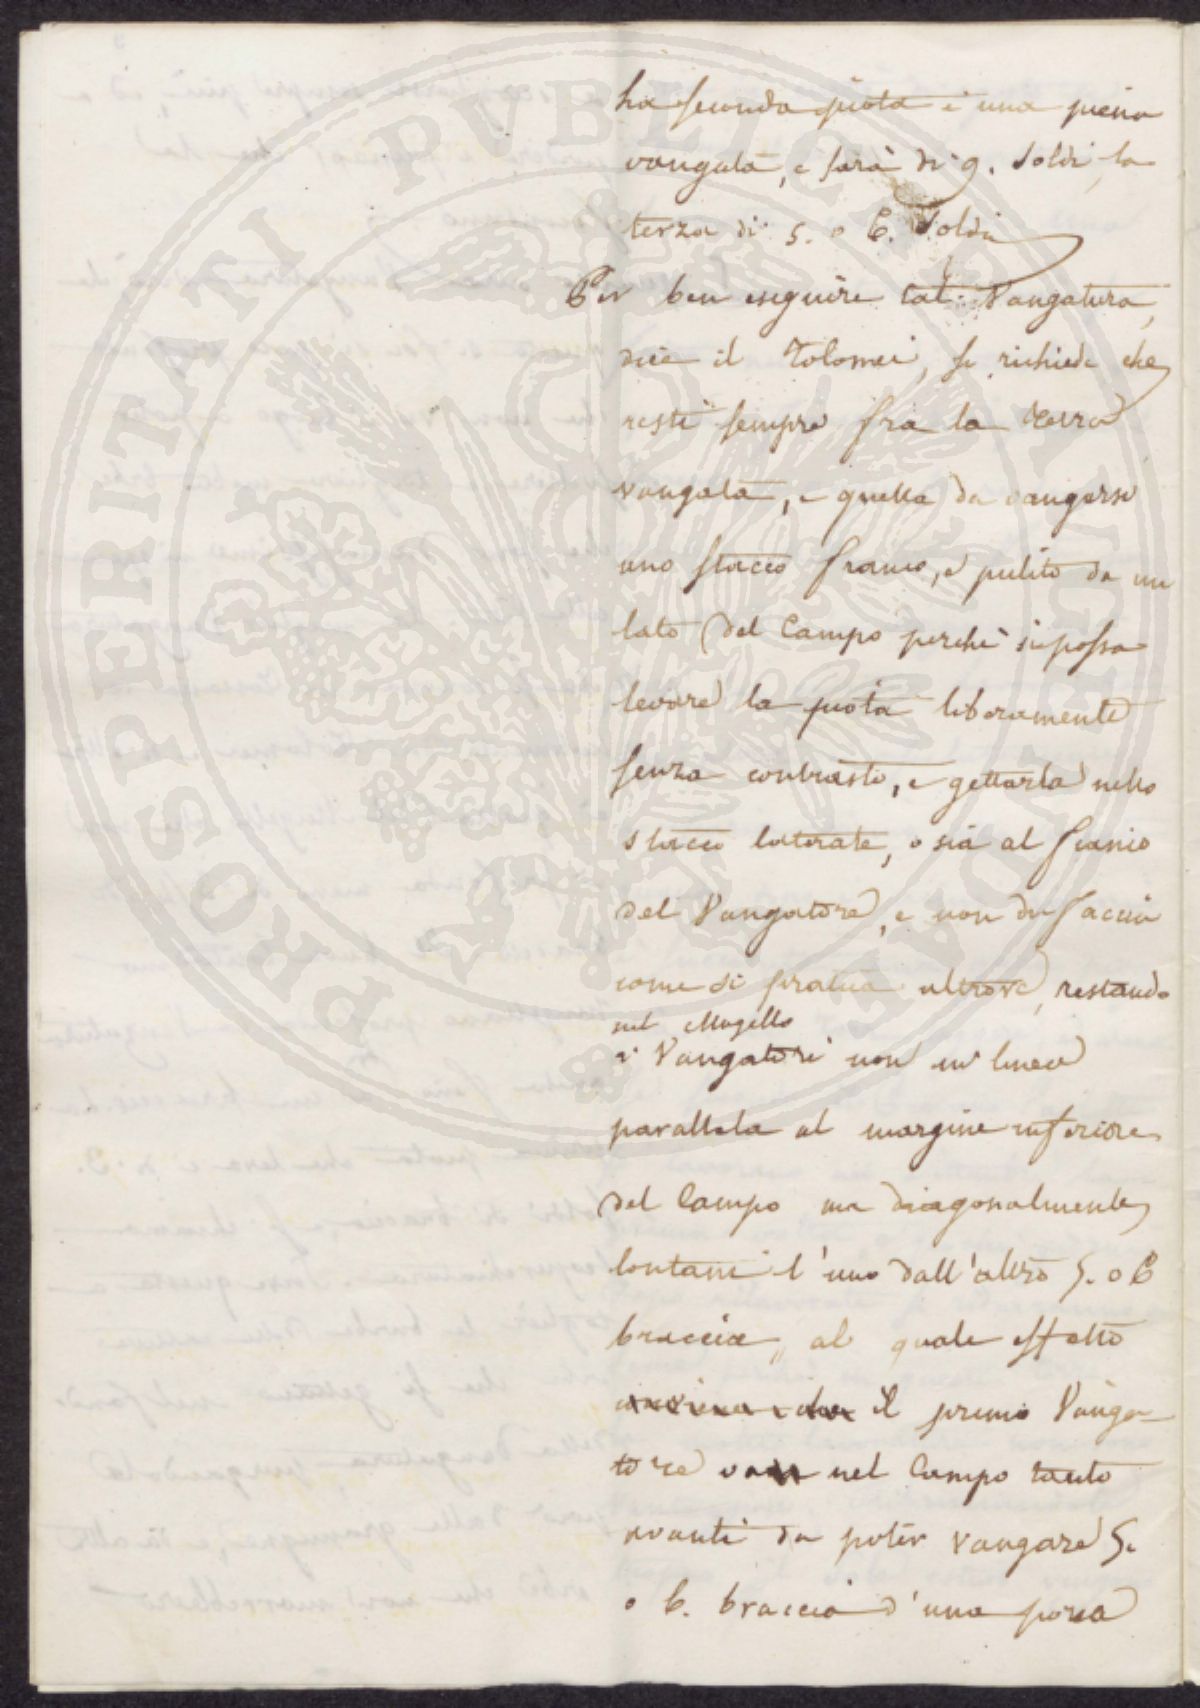 PROSPERITATI PVBLICAE AVGENDAE
La seconda piota è una piena
vangata, e sarà di 9. soldi, la
terza di 5. o 6. soldi
Per ben eseguire tal Vangatura,
dice il Tolomei, si richiede che
resti sempre fra la terra
vangata, e quella da vangarsi
uno stacco franco, e pulito da un
lato del Campo perchè si possa
levare la piota liberamente
senza contrasto, e gettarla nello
stacco laterale, o sia al fianco
del Vangatore, e non di faccia
come si pratica altrove, restando
nel Mugello
i Vangatori non in linea
parallela al margine inferiore
del Campo ma diagonalmente
lontani l'uno dall'altro 5. o 6
braccia, al quale effetto
il primo Vanga-
tore va nel Campo tanto
avanti da poter vangare 5.
o 6. braccia d'una porca